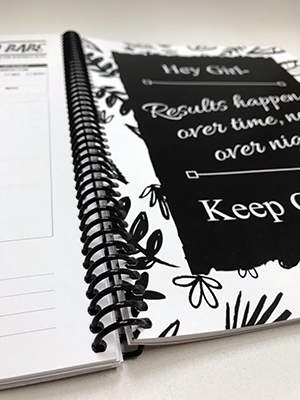 BABE
Hey Girl-
Results happen
over time, n
over nig
Keep G